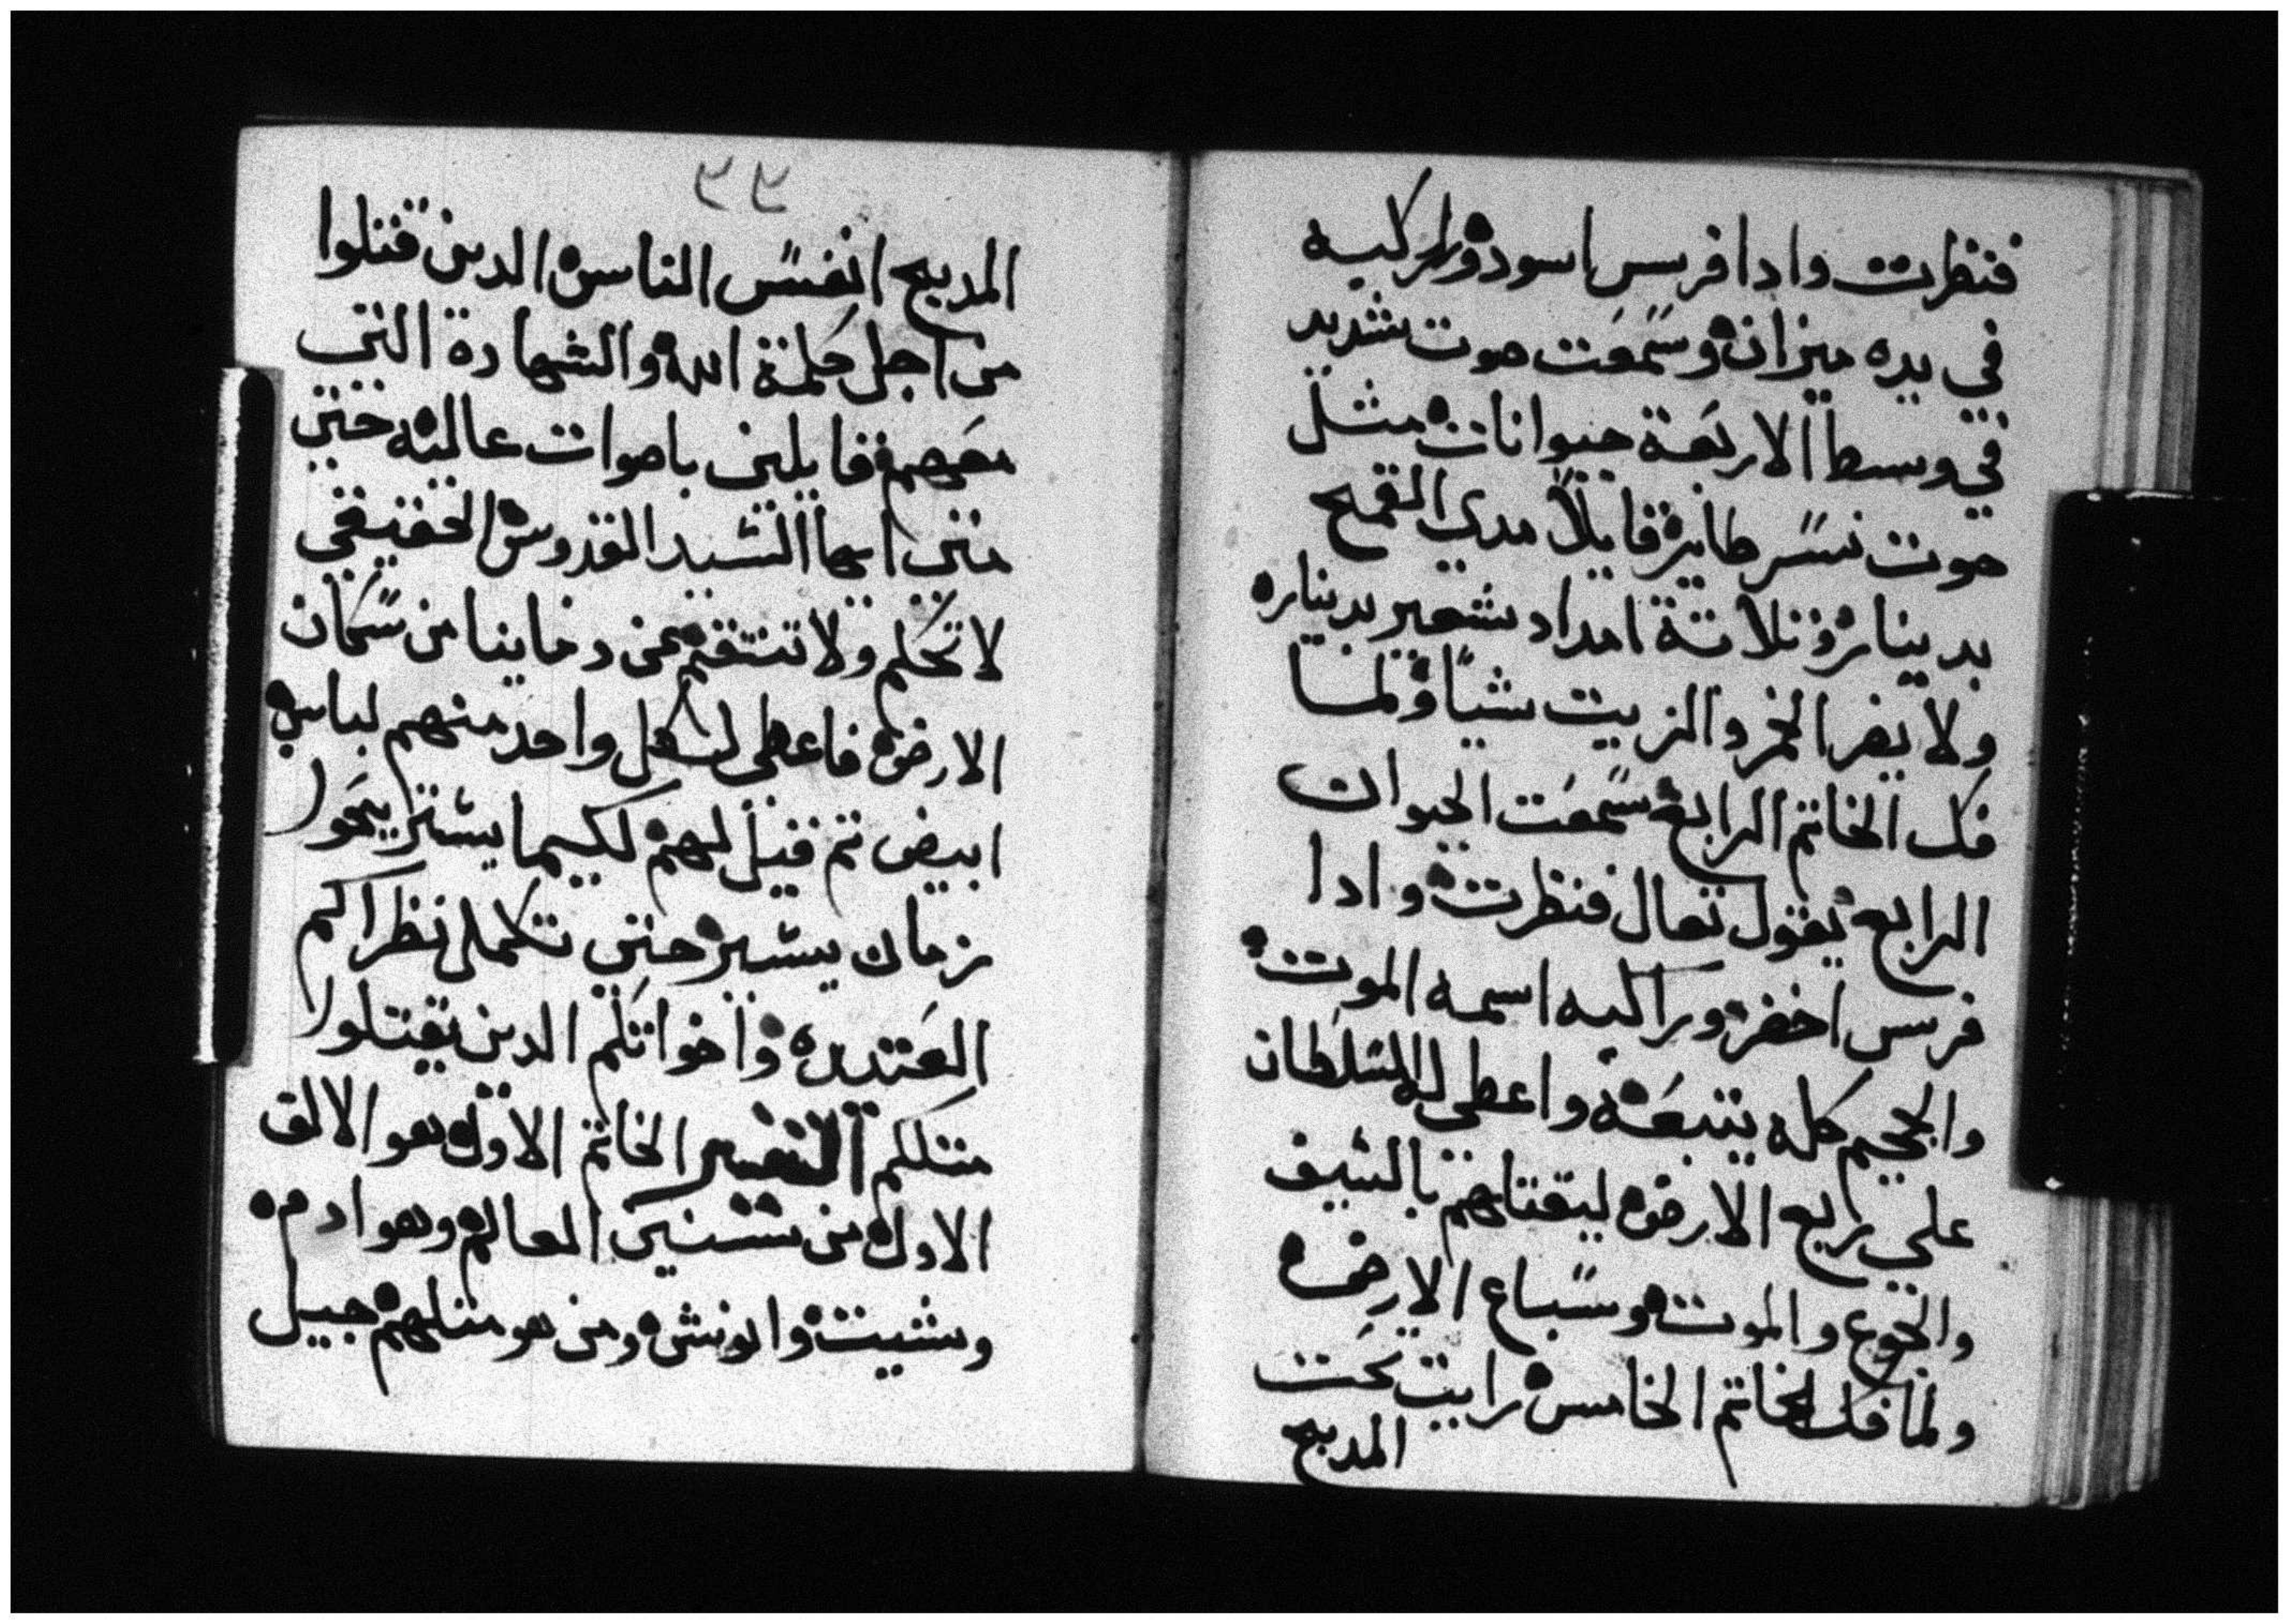 فنظرت وادا فرس اسود وراكبه
في يده ميزان وسمعت صوت شديد
في وسط الاربعة حيوانات مثل
صوت نسر طاير قايلاً مدي القمح
بدينار وثلاتة امداد شعير بدينار
ولا يضر الخمر والزيت شياً ولما
فك الخاتم الرابع سمعت الحيوان
الرابع يقول تعال فنظرت وادا
فرس اخضر وراكبه اسمه الموت
والجحيم كله يتبعه واعطي له السلطان
علي رابع الارض ليقتلهم بالسيف
والجوع والموت وسباع الارض
ولما فك الخاتم الخامس رايت تحت
المدبح
المدبح انفس الناس الدين قتلوا
من اجل كلمة الله والشهادة التي
معهم قايلين باصوات عاليه حتي
متي ايها السيد القدوس الحقيقي
لا تحكم ولا تنتقم عن دماينا من سكان
الارض فاعطي لكل واحد منهم لباس
ابيض تم قيل لهم لكيما يستريحوا
زمان يسير حتي تكمل نظراكم
العتيده واخواتكم الدين يقتلوا
متلكم التفسير الخاتم الاول هو الالف
الاول من سنين العالم وهو ادم
وشيت وانوش ومن هو متلهم جيل